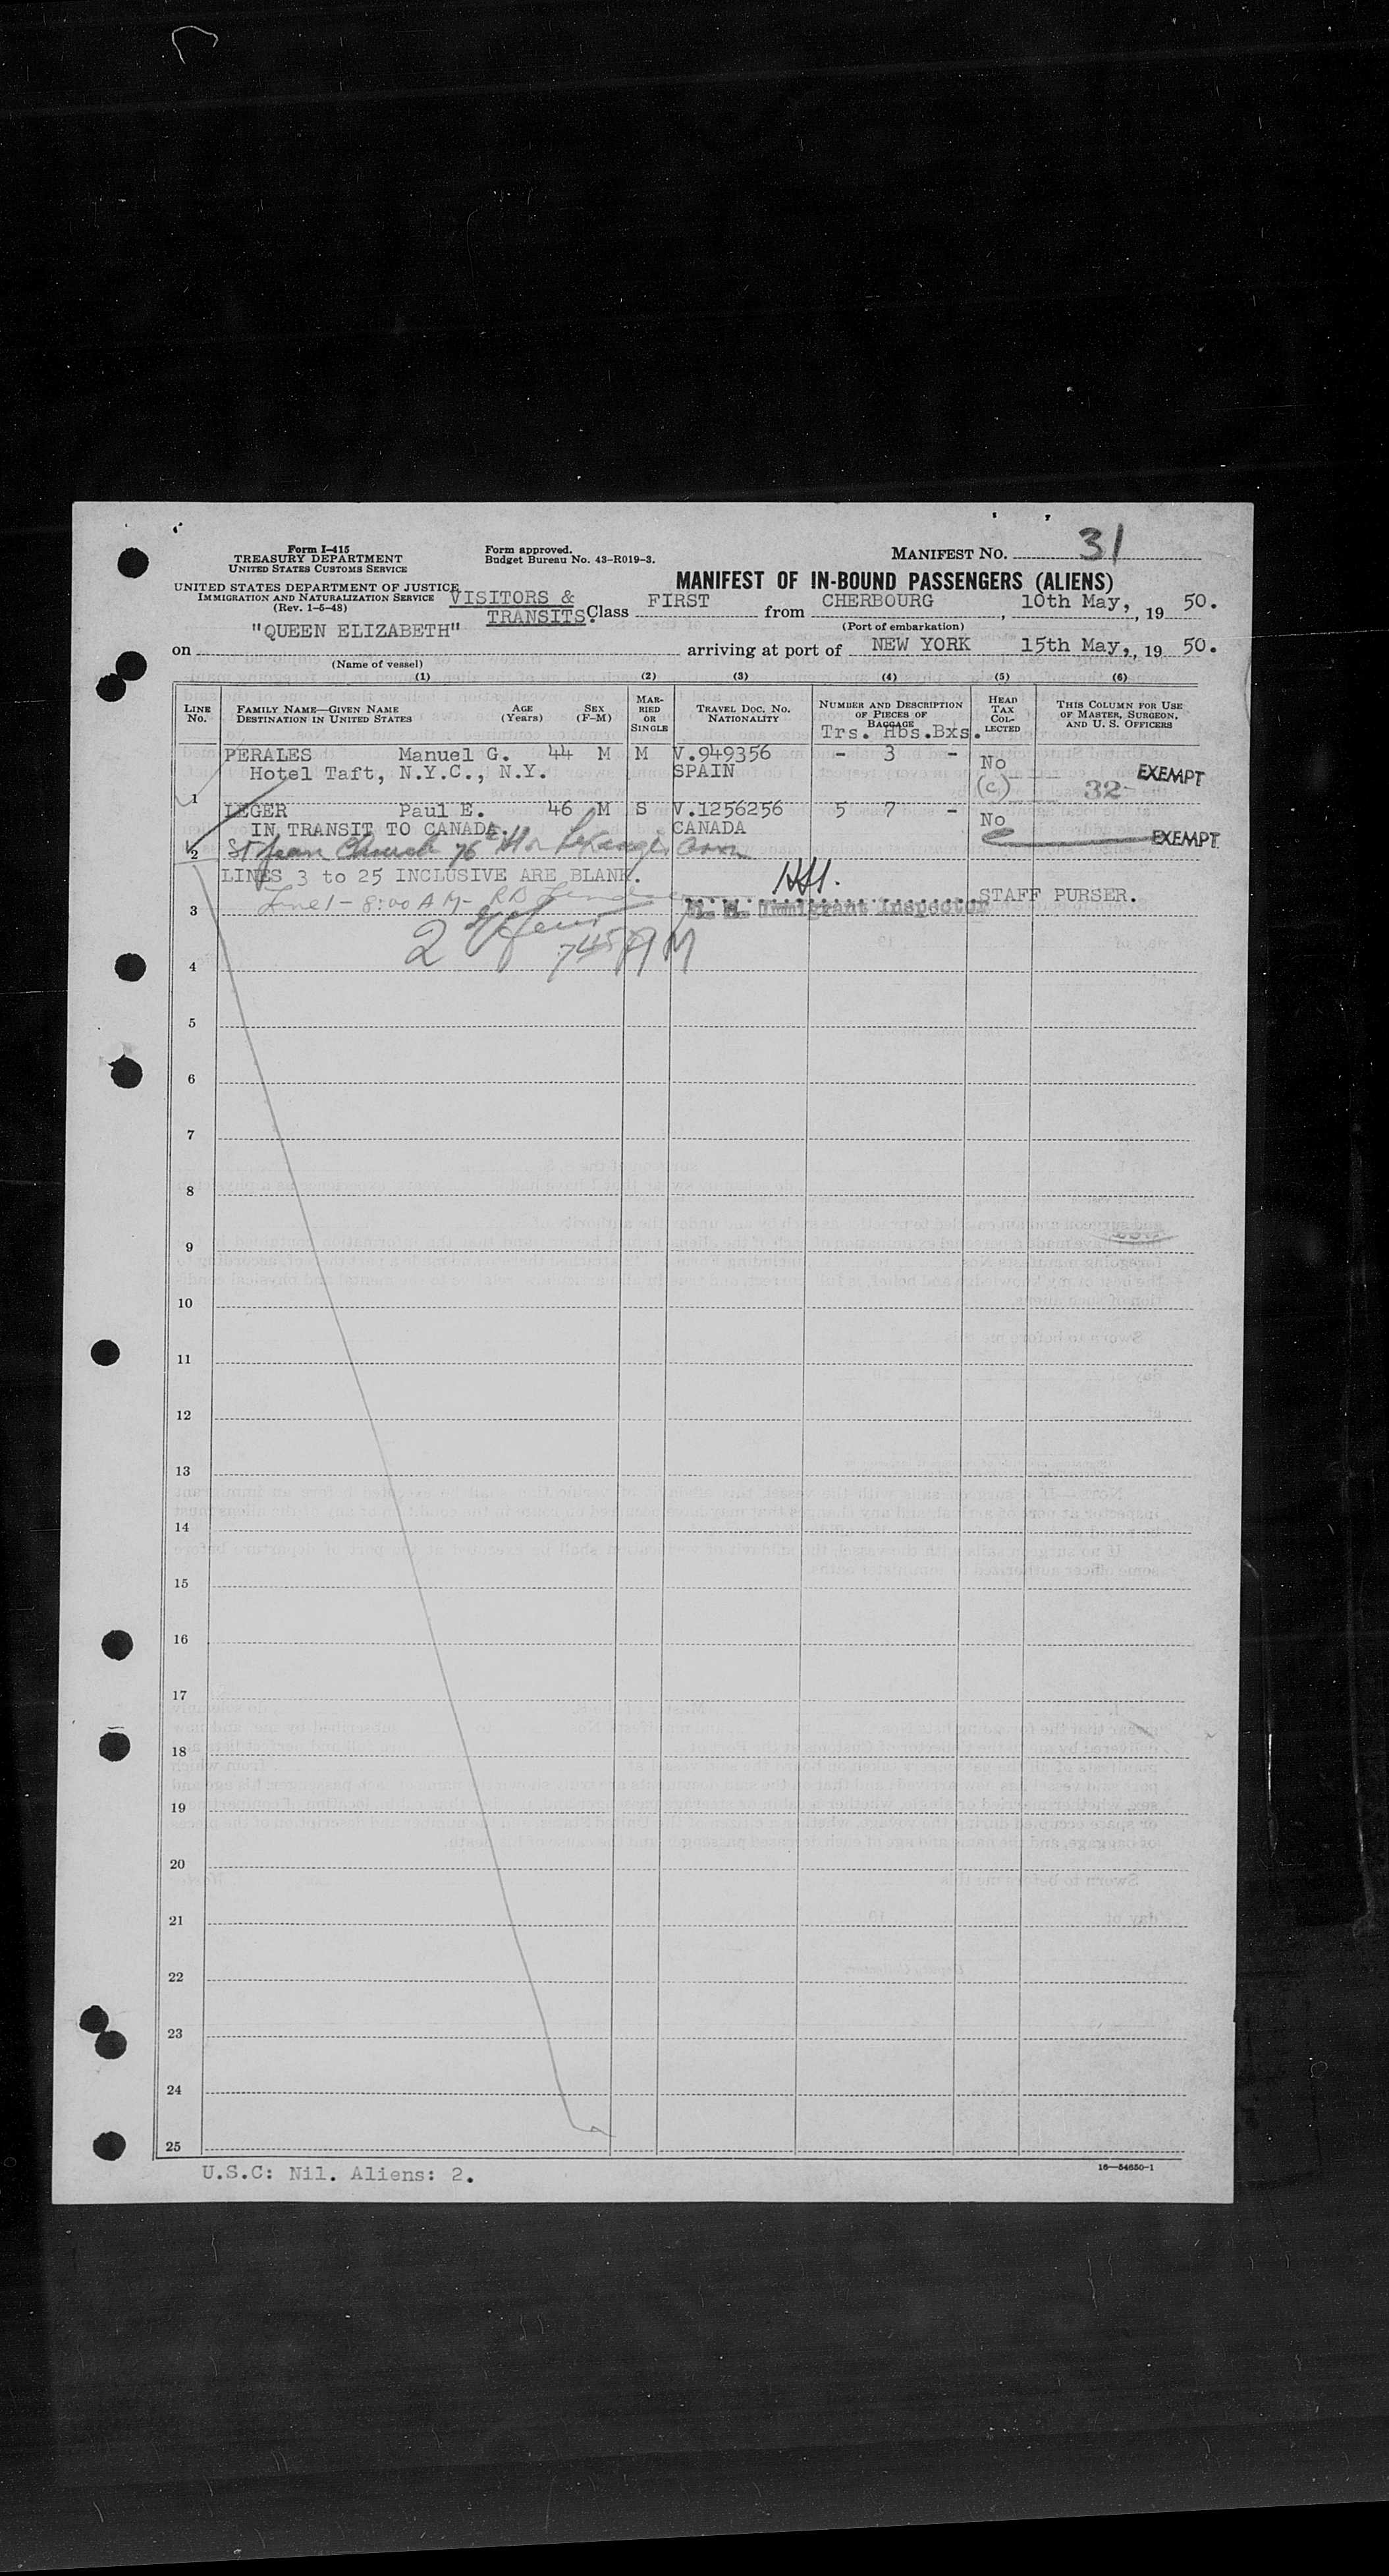 Form I-415
TREASURY DEPARTMENT
UNITED STATES CUSTOMS SERVICE
Form approved.
Budget Bureau No. 43-R019-3.
MANIFEST NO. 31
UNITED STATES DEPARTMENT OF JUSTICE
IMMIGRATION AND NATURALIZATION SERVICE
(Rev. 1-5-48)
MANIFEST OF IN-BOUND PASSENGERS (ALIENS)
VISITORS &
TRANSITS. Class FIRST from CHERBOURG, 10th May, 19 50.
(Port of embarkation)
on "QUEEN ELIZABETH" arriving at port of NEW YORK 15th May, 19 50.
(Name of vessel)
(1) (2) (3) (4) (5) (6)
LINE NO. FAMILY NAME—GIVEN NAME DESTINATION IN UNITED STATES AGE (Years) SEX (F-M) MARRIED OR SINGLE TRAVEL DOC. NO. NATIONALITY NUMBER AND DESCRIPTION OF PIECES OF BAGGAGE HEAD TAX COLLECTED THIS COLUMN FOR USE OF MASTER, SURGEON, AND U. S. OFFICERS
Trs. Hbs. Bxs.
PERALES Manuel G. 44 M M V.949356 - 3 - No
1 Hotel Taft, N.Y.C., N.Y. SPAIN (c) 32- EXEMPT
LEGER Paul E. 46 M S V.1256256 5 7 - No
IN TRANSIT TO CANADA. CANADA EXEMPT
2 St Jean Church 76
LINES 3 to 25 INCLUSIVE ARE BLANK.
STAFF PURSER.
3 Line 1 - 8:00 AM - RD Immigrant Inspector
2 745 AM
4
5
6
7
8
9
10
11
12
13
14
15
16
17
18
19
20
21
22
23
24
25
U.S.C: Nil. Aliens: 2.
16—54650-1